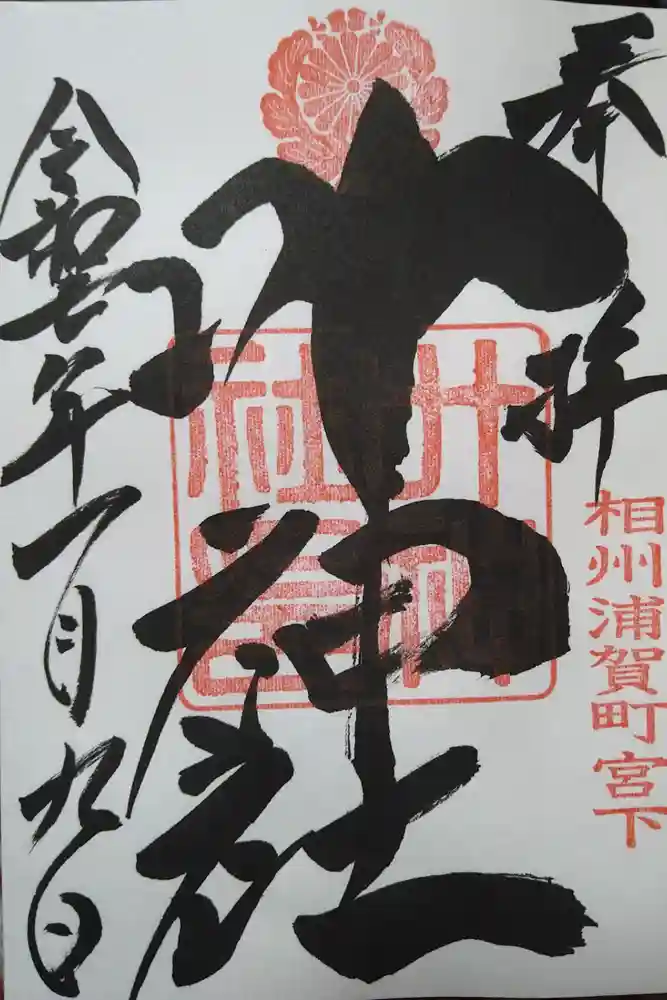 奉拝
相州浦賀町宮下
叶神社
叶神
社印
令和七年一月九日